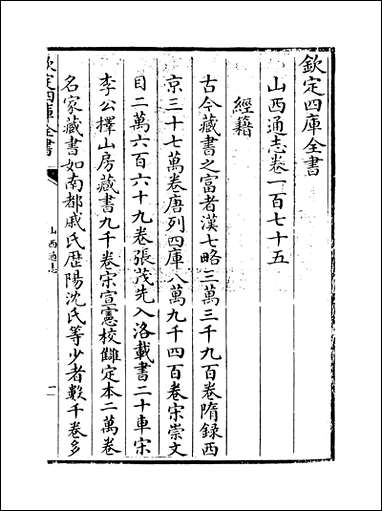 欽定四庫全書
山西通志卷一百七十五
經籍
古今藏書之富者漢七略三萬三千九百卷隋録西
京三十七萬卷唐列四庫八萬九千四百卷宋崇文
目二萬六百六十九卷張茂先入洛載書二十車宋
李公擇山房藏書九千卷宋宣憲校讎定本二萬卷
名家藏書如南都戚氏歴陽沈氏等少者數千卷多
欽定四庫全書
山西通志
一